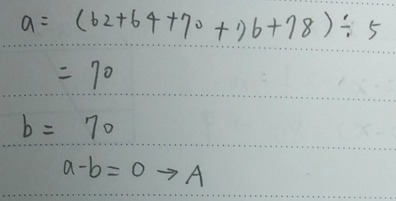 a = (62+64+70+76+78)÷5
= 70
b = 70
a-b=0→A